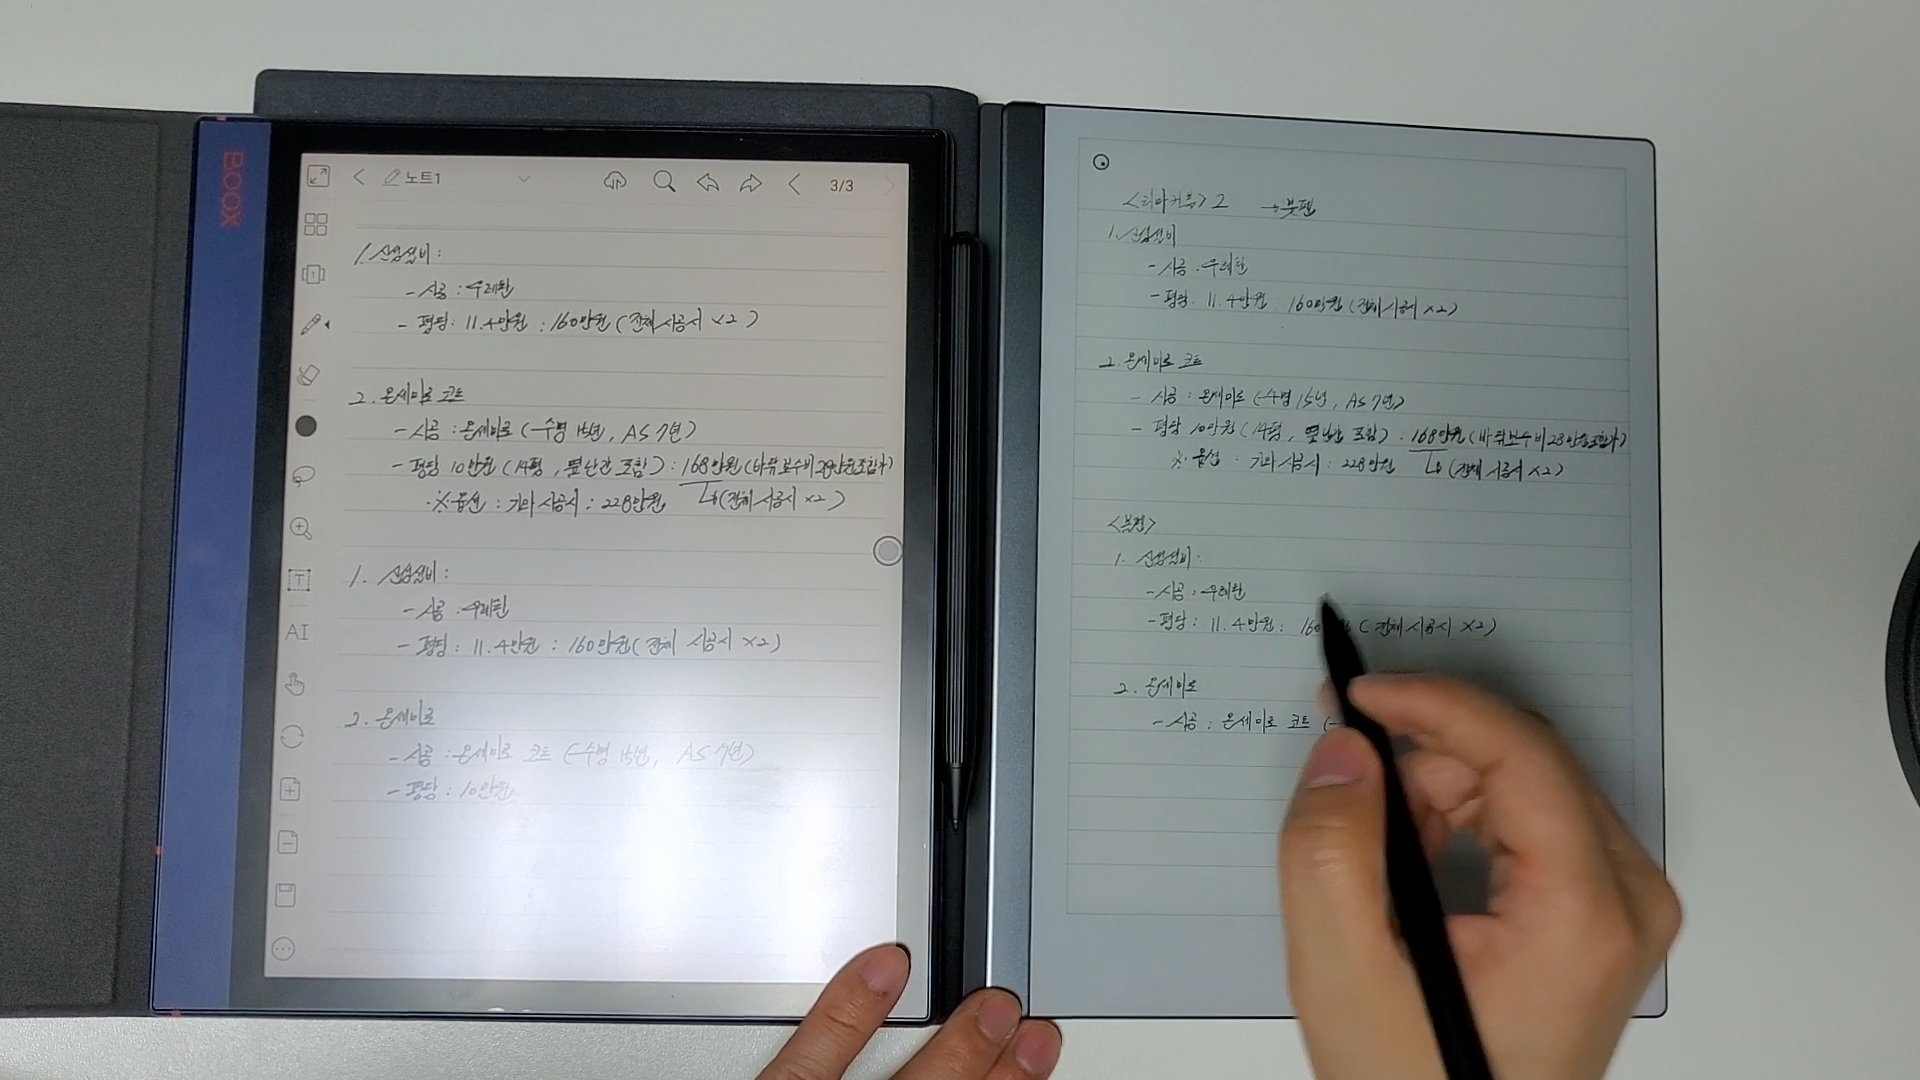 BOOX
노트1
3/3
1. 산업설비 :
- 시공 : 우레탄
- 평당 : 11.4만원 : 160만원 (전체 시공시 x2)
2. 온세미로 코트
- 시공 : 온세미로 (수명 15년, AS 7년)
- 평당 10만원 (14평, 옆난간 포함) : 168만원 (바닥보수비 28만원포함가)
※ 옵션 : 기와 시공시 : 228만원 (전체 시공시 x2)
1. 산업설비 :
- 시공 : 우레탄
- 평당 : 11.4만원 : 160만원 (전체 시공시 x2)
2. 온세미로
- 시공 : 온세미로 코트 (수명 15년, AS 7년)
- 평당 : 10만원
T
AI
<리마커블> 2 → 붓펜
1. 산업설비
- 시공 : 우레탄
- 평당. 11.4만원. 160만원 (전체 시공시 x2)
2. 온세미로 코트
- 시공 : 온세미로 (수명 15년, AS 7년)
- 평당 10만원 (14평, 옆난간 포함) : 168만원 (바닥보수비 28만원포함가)
※ 옵션 : 기와 시공시 : 228만원 (전체 시공시 x2)
<볼펜>
1. 산업설비 :
- 시공 : 우레탄
- 평당 : 11.4만원 : 160 원 (전체 시공시 x2)
2. 온세미로
- 시공 : 온세미로 코트 (